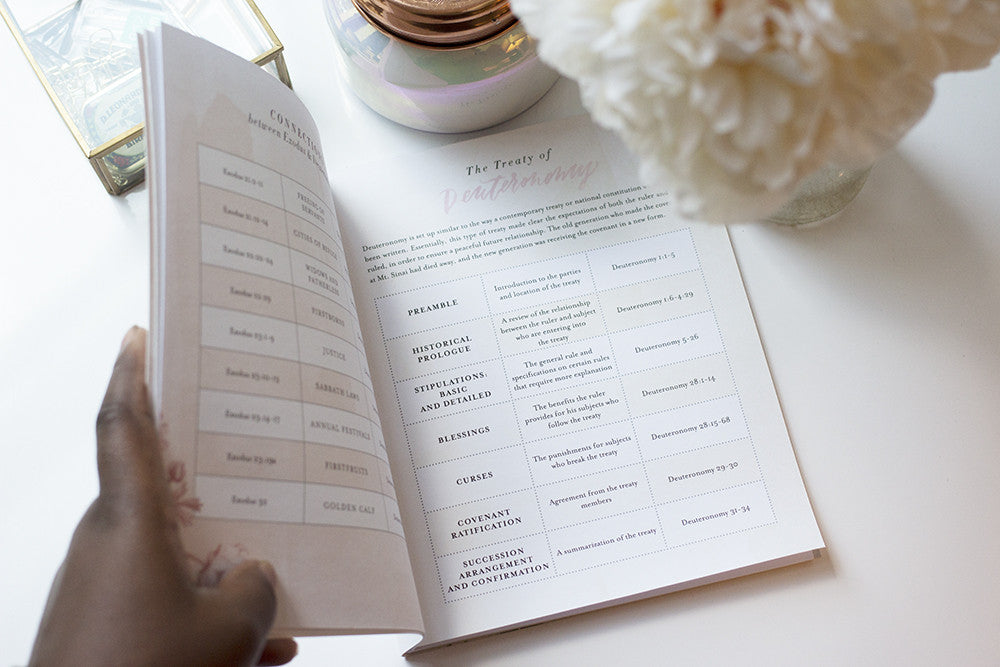 CONNECTI
between Exodus &
Exodus 21:2-11
FREEING OF
SERVANTS
Exodus 21:12-14
CITIES OF REFUGE
Exodus 22:22-24
WIDOWS AND
FATHERLESS
Exodus 22:29
FIRSTBORNS
Exodus 23:1-9
JUSTICE
SABBATH LAWS
ANNUAL FESTIVALS
FIRSTFRUITS
Exodus 32
GOLDEN CALF
The Treaty of
Deuteronomy
Deuteronomy is set up similar to the way a contemporary treaty or national constitution
been written. Essentially, this type of treaty made clear the expectations of both the ruler and
ruled, in order to ensure a peaceful future relationship. The old generation who made the cove
at Mt. Sinai had died away, and the new generation was receiving the covenant in a new form.
PREAMBLE
Introduction to the parties
and location of the treaty
Deuteronomy 1:1-5
HISTORICAL
PROLOGUE
A review of the relationship
between the ruler and subject
who are entering into
the treaty
Deuteronomy 1:6-4:29
STIPULATIONS:
BASIC
AND DETAILED
The general rule and
specifications on certain rules
that require more explanation
Deuteronomy 5-26
BLESSINGS
The benefits the ruler
provides for his subjects who
follow the treaty
Deuteronomy 28:1-14
CURSES
The punishments for subjects
who break the treaty
Deuteronomy 28:15-68
COVENANT
RATIFICATION
Agreement from the treaty
members
Deuteronomy 29-30
SUCCESSION
ARRANGEMENT
AND CONFIRMATION
A summarization of the treaty
Deuteronomy 31-34